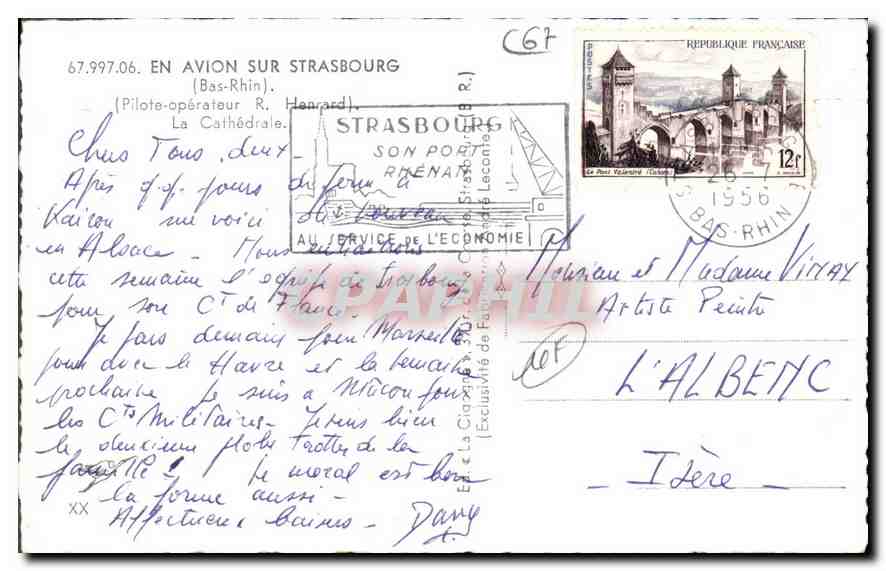 67.997.06. EN AVION SUR STRASBOURG
(Bas-Rhin).
(Pilote-opérateur R. Henrard).
La Cathédrale.
C67
POSTES
RÉPUBLIQUE FRANÇAISE
Le Pont Valentré (Cahors)
12f
STRASBOURG
SON PORT
RHÉNAN
AU SERVICE DE L'ECONOMIE
26-7
1956
BAS-RHIN
Chers Tous deux -
Après q.q. jours de ferme à
me voici de nouveau
en Alsace - Nous entraînons
cette semaine l'équipe de Strasbourg
pour son Ct de France.
Je pars demain pour Marseille
jouer avec le Havre et la semaine
prochaine je suis à Mâcon pour
les Cts Militaires - Je suis bien
le deuxième globe trotter de la
famille! Le moral est bon
la forme aussi -
Affectueux baisers - Dany
XX
Strasbourg (B.R.)
(Exclusivité de Fabrication André Leconte)
Monsieur et Madame VINAY
Artiste Peintre
L'ALBENC
- Isère -
10F
CPAPHIL